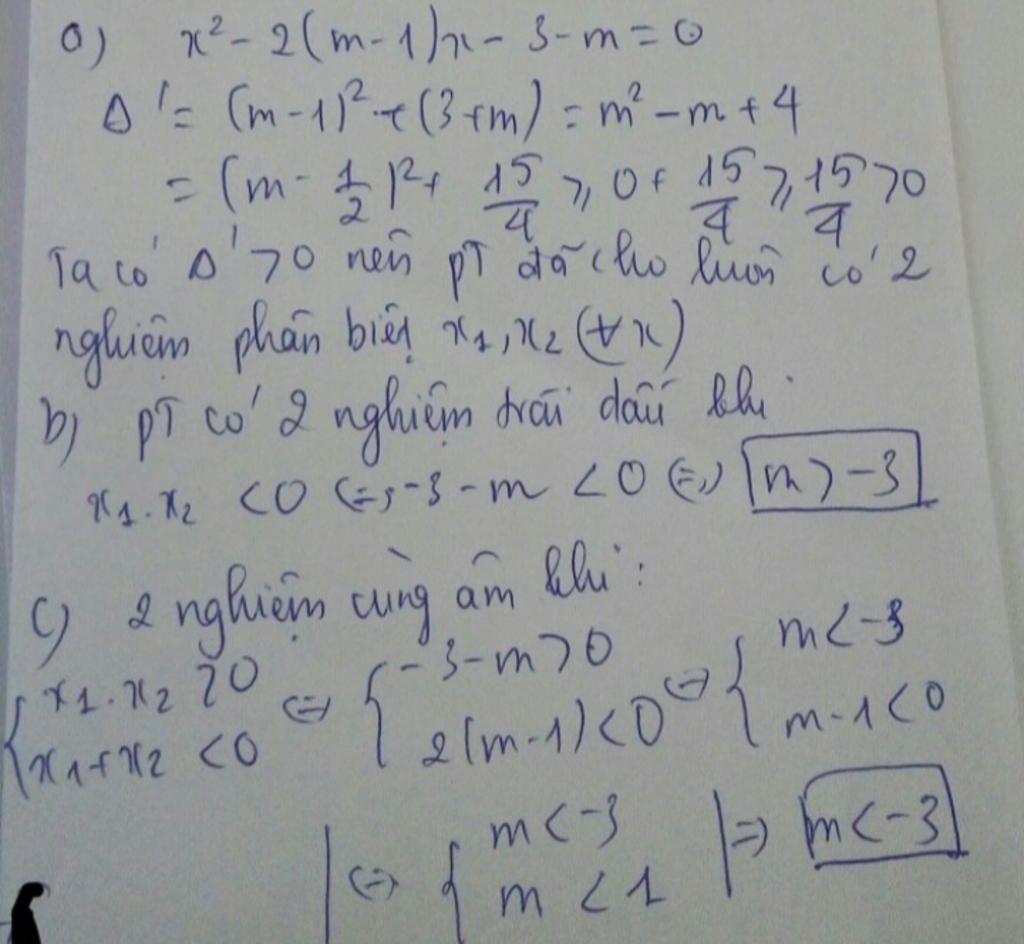 a) x² - 2(m-1)x - 3 - m = 0
Δ' = (m-1)² + (3+m) = m² - m + 4
= (m - 1/2)² + 15/4 ⩾ 0 + 15/4 ⩾ 15/4 > 0
Ta có Δ' > 0 nên pT đã cho luôn có 2
nghiệm phân biệt x₁, x₂ (∀x)
b) pT có 2 nghiệm trái dấu khi
x₁.x₂ < 0 (=) -3 - m < 0 (=) m > -3
c) 2 nghiệm cùng âm khi :
{ x₁.x₂ > 0 (=) { -3-m > 0 (=) { m < -3
x₁+x₂ < 0 2(m-1) < 0 m-1 < 0
| (=) { m < -3 | => m < -3
m < 1